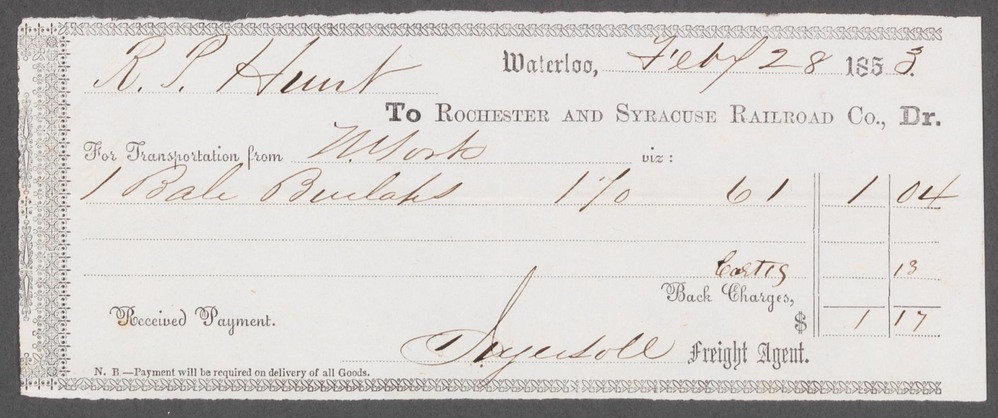 R. P. Hunt Waterloo, Feby 28 1853.
To Rochester and Syracuse Railroad Co., Dr.
For Transportation from N. York viz:
1 Bale Burlaps 170 61 1 04
Cartg 13
Back Charges,
Received Payment. $ 1 17
Ingersoll Freight Agent.
N. B.—Payment will be required on delivery of all Goods.